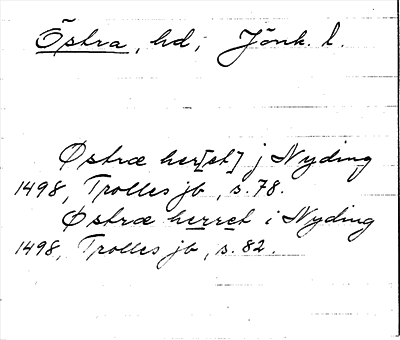 Östra, hd, Jönk. l.
Østræ her[et] j Nyding
1498, Trolles jb, s. 78.
Østræ herret i Nyding
1498, Trolles jb, s. 82.